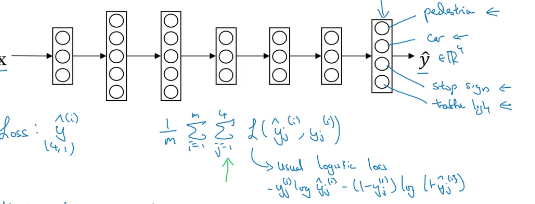 pedestrian ←
car ←
x
ŷ ∈ ℝ⁴
stop sign ←
traffic light ←
Loss: ŷ^(i)
(4,1)
1/m Σ_{i=1}^{m} Σ_{j=1}^{4} ℒ(ŷ_j^(i), y_j^(i))
↳ usual logistic loss
- y_j^(i) log ŷ_j^(i) - (1-y_j^(i)) log (1-ŷ_j^(i))